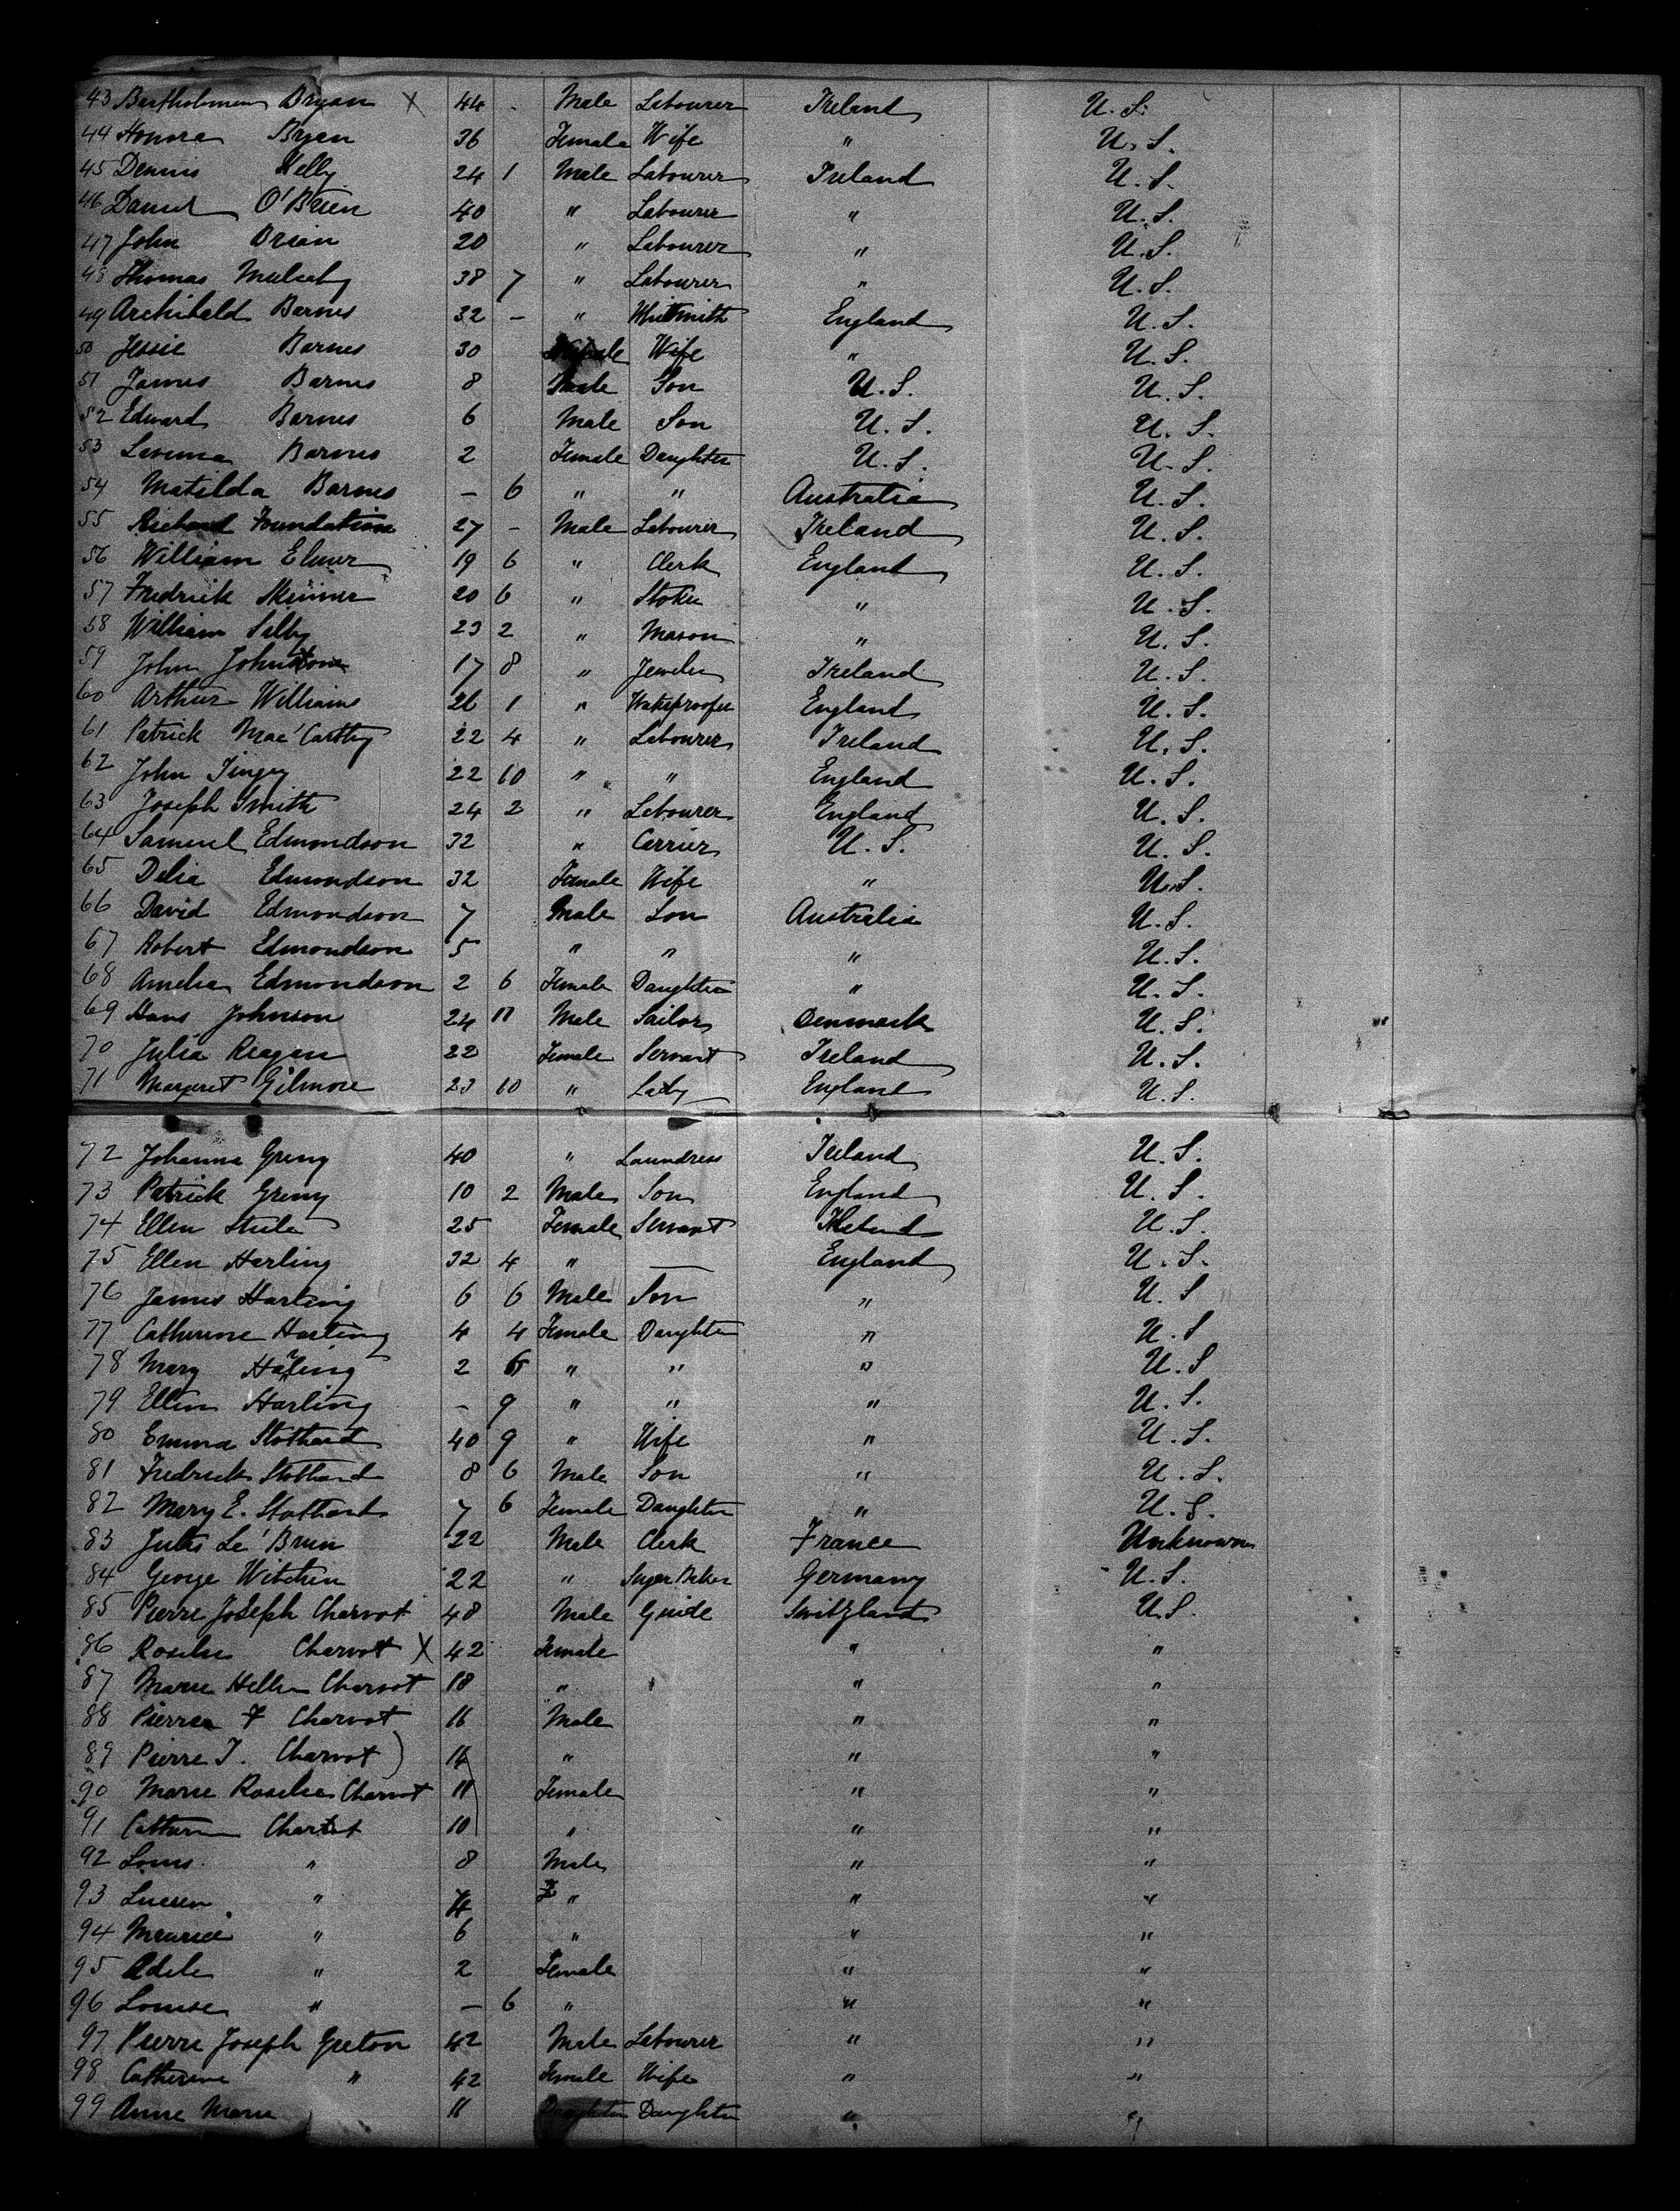 43 Bartholomew Bryan X 44 - Male Labourer Ireland U.S.
44 Honora Bryan 36 Female Wife " U.S.
45 Dennis Kelly 24 1 Male Labourer Ireland U.S.
46 Daniel O'Brien 40 " Labourer " U.S.
47 John Brian 20 " Labourer " U.S.
48 Thomas 38 7 " Labourer " U.S.
49 Archibald Barnes 32 - " Whitesmith England U.S.
50 Jessie Barnes 30 Female Wife " U.S.
51 James Barnes 8 Male Son U.S. U.S.
52 Edward Barnes 6 Male Son U.S. U.S.
53 Lavinia Barnes 2 Female Daughter U.S. U.S.
54 Matilda Barnes - 6 " " Australia U.S.
55 Richard Foundation 27 - Male Labourer Ireland U.S.
56 William Elmer 19 6 " Clerk England U.S.
57 Fredrick Skinner 20 6 " Stoker " U.S.
58 William Silby 23 2 " Mason " U.S.
59 John Johnston 17 8 " Jeweler Ireland U.S.
60 Arthur Williams 26 1 " Waterproofer England U.S.
61 Patrick Mac'Carthy 22 4 " Labourer Ireland U.S.
62 John Tingey 22 10 " " England U.S.
63 Joseph Smith 24 2 " Labourer England U.S.
64 Samuel Edmondson 32 " Carrier U.S. U.S.
65 Delia Edmondson 32 Female Wife " U.S.
66 David Edmondson 7 Male Son Australia U.S.
67 Robert Edmondson 5 " " " U.S.
68 Amelia Edmondson 2 6 Female Daughter " U.S.
69 Hans Johnson 24 11 Male Sailor Denmark U.S.
70 Julia Reagan 22 Female Servant Ireland U.S.
71 Margaret Gilmore 23 10 " Lady England U.S.
72 Johanna Greny 40 " Laundress Ireland U.S.
73 Patrick Greny 10 2 Male Son England U.S.
74 Ellen Steele 25 Female Servant Ireland U.S.
75 Ellen Harling 32 4 " — England U.S.
76 James Harling 6 6 Male Son " U.S
77 Catherine Harling 4 4 Female Daughter " U.S
78 Mary Harling 2 6 " " " U.S
79 Ellen Harling - 9 " " " U.S.
80 Emma Stothard 40 9 " Wife " U.S.
81 Fredrick Stothard 8 6 Male Son " U.S.
82 Mary E. Stothard 7 6 Female Daughter " U.S.
83 Jules Le'Brun 22 Male Clerk France Unknown
84 George Witchen 22 " Sugar Baker Germany U.S.
85 Pierre Joseph Charvot 48 Male Guide Switzland U.S.
86 Roselie Charvot X 42 Female " "
87 Marie Hellen Charvot 18 " " "
88 Pierrea F Charvot 16 Male " "
89 Pierre J. Charvot ) 14 " " "
90 Marie Roselie Charvot 11 Female " "
91 Catherine Charvot 10 " " "
92 Louis " 8 Male " "
93 Lucien " " " "
94 Maurice " 6 " " "
95 Adele " 2 Female " "
96 Louise " - 6 " " "
97 Pierre Joseph Greton 42 Male Labourer " "
98 Catherine " 42 Female Wife " "
99 Anne Marie 11 Daughter Daughter " "